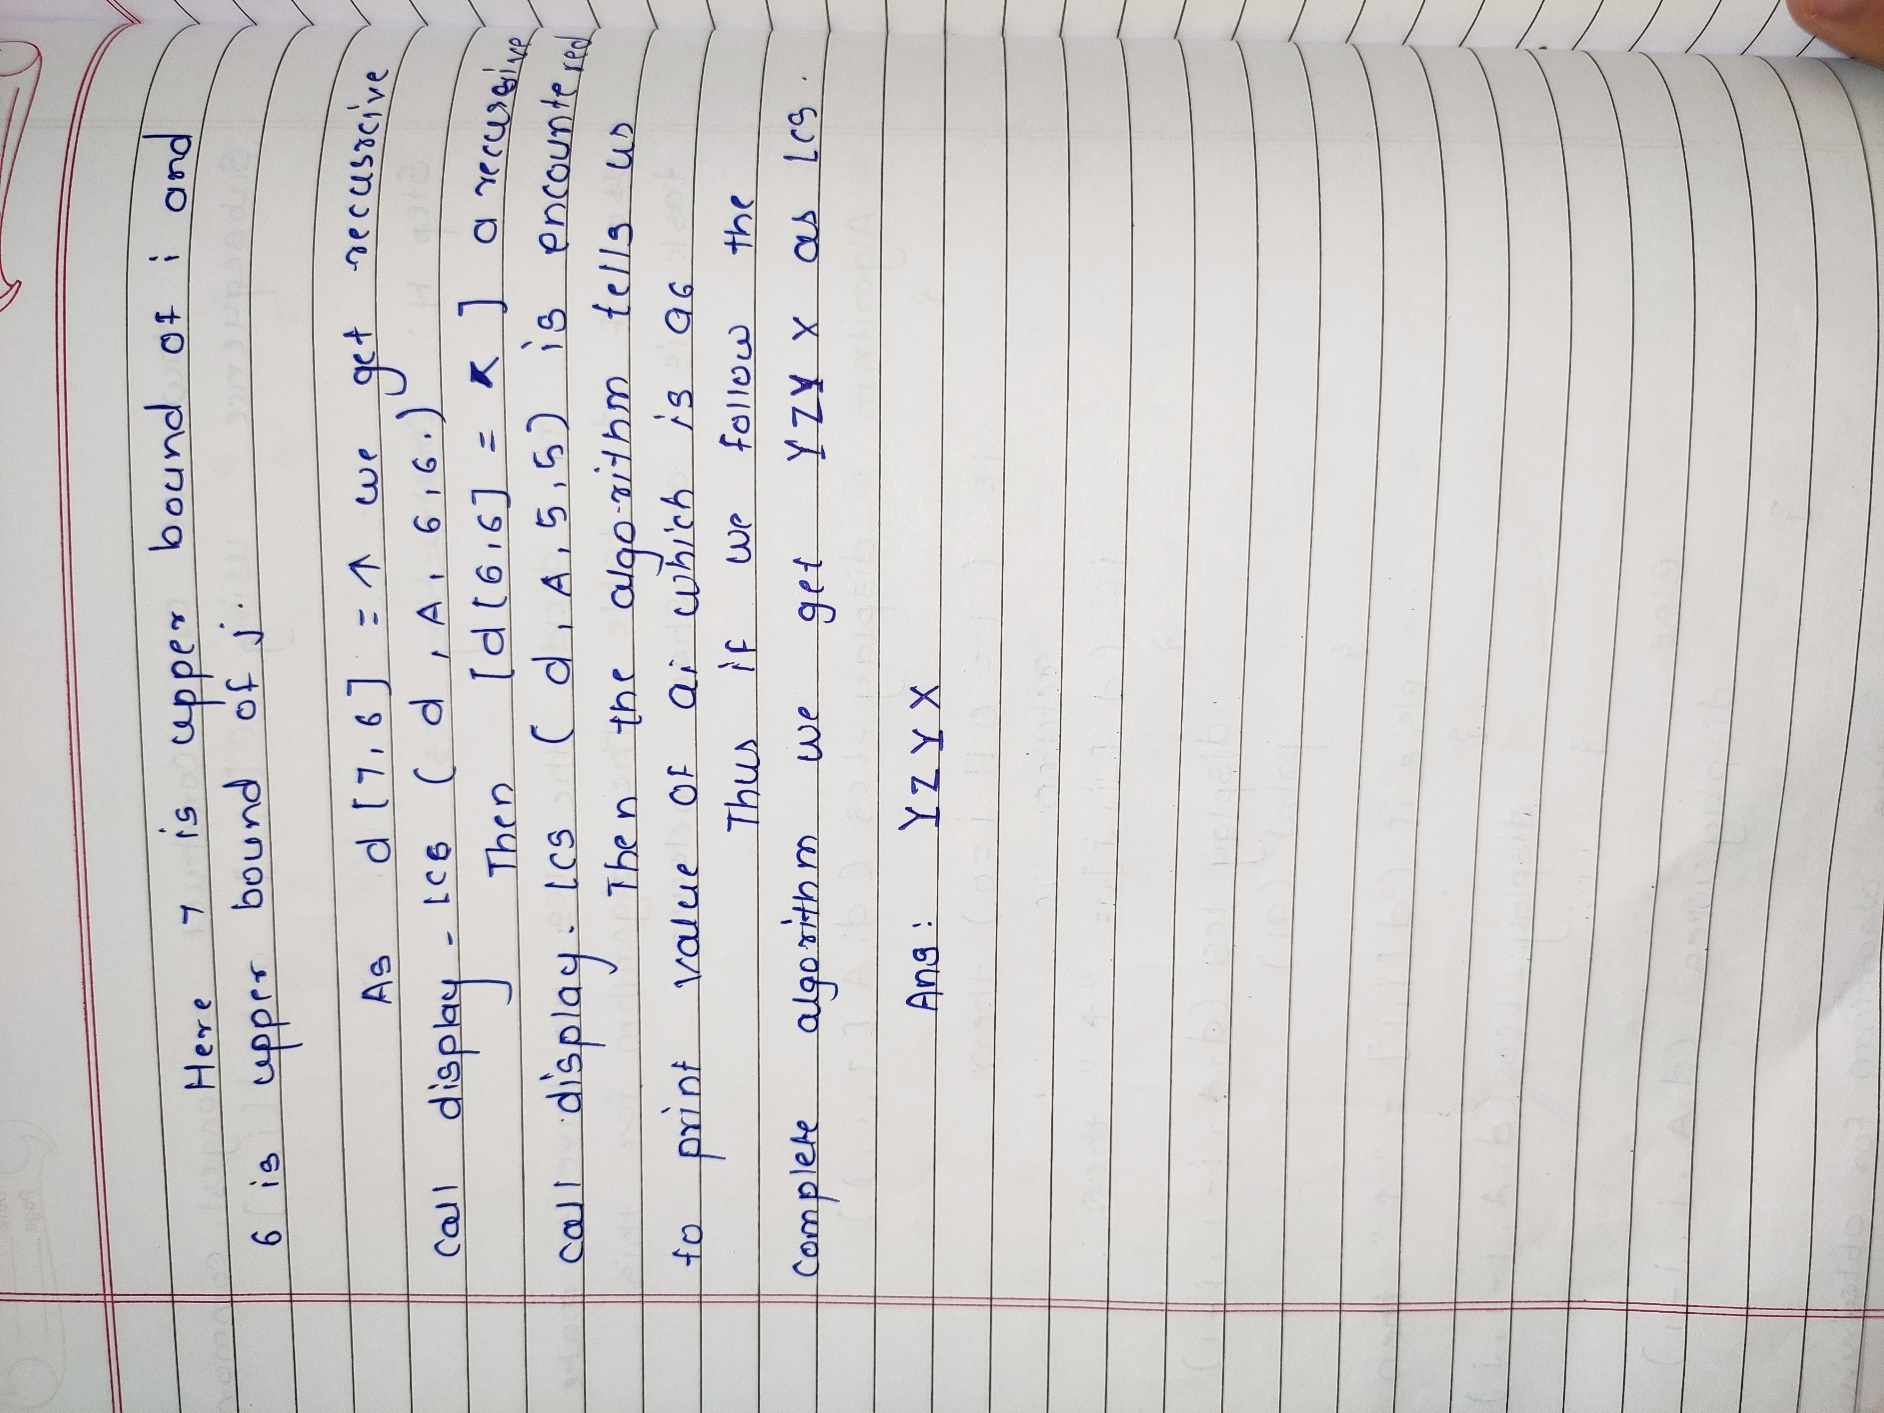 Here 7 is upper bound of i and
6 is upper bound of j.
As d[7,6] = ↑ we get recursive
call display-lcs (d, A, 6, 6.)
Then [d[6,6] = ↖] a recursive
call display-lcs (d, A, 5, 5) is encountered
Then the algorithm tells us
to print value of ai which is a6
Thus if we follow the
complete algorithm we get YZY X as lcs.
Ans: YZYX